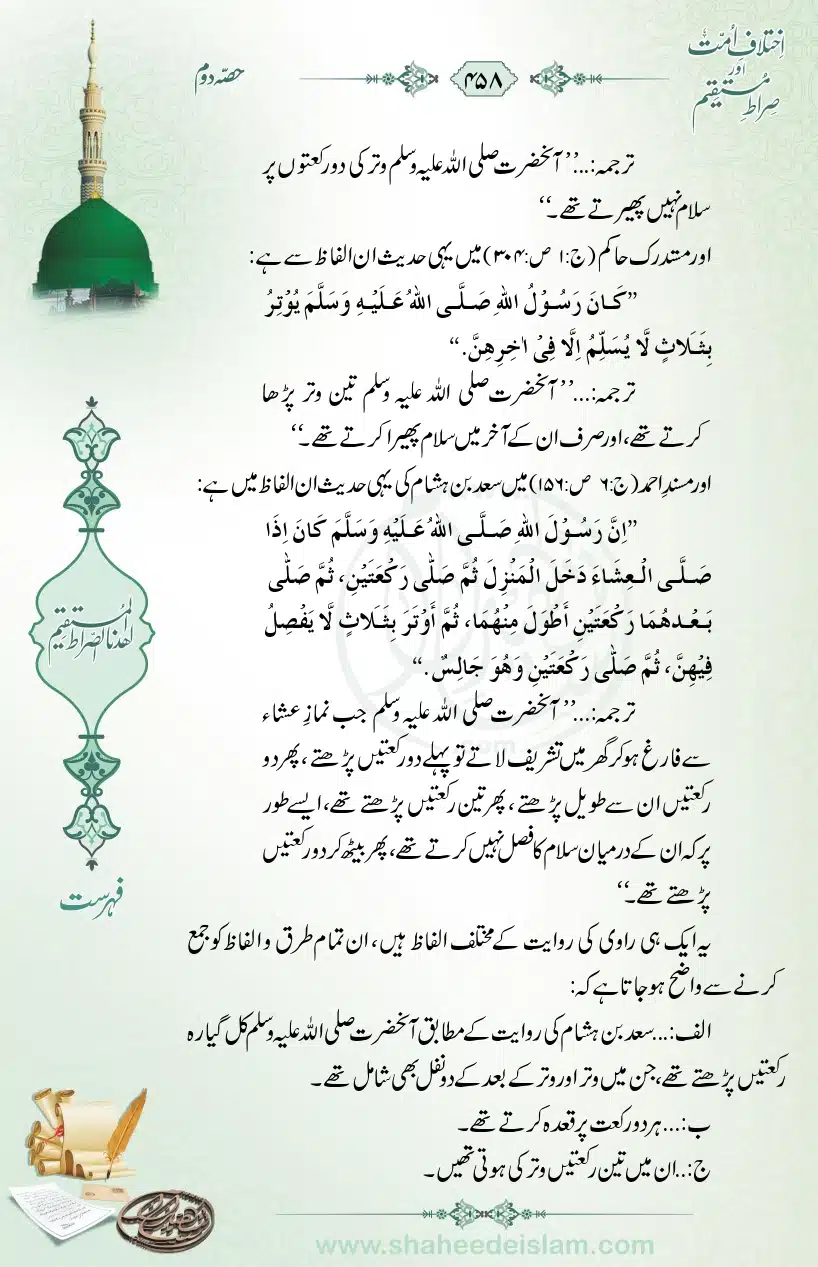 اِختلافِ اُمّت
اور
صِراطِ مُستقیم
۴۵۸
حصہ دوم
ترجمہ:...’’آنحضرت صلی اللہ علیہ وسلم وتر کی دو رکعتوں پر
سلام نہیں پھیرتے تھے۔‘‘
اور مستدرک حاکم (ج:۱ ص:۳۰۴) میں یہی حدیث ان الفاظ سے ہے:
”کَانَ رَسُوْلُ اللهِ صَلَّی اللهُ عَلَیْهِ وَسَلَّمَ یُوْتِرُ
بِثَلَاثٍ لَّا یُسَلِّمُ اِلَّا فِیْ اٰخِرِهِنَّ.“
ترجمہ:...’’آنحضرت صلی اللہ علیہ وسلم تین وتر پڑھا
کرتے تھے، اور صرف ان کے آخر میں سلام پھیرا کرتے تھے۔‘‘
اور مسندِ احمد (ج:۶ ص:۱۵۶) میں سعد بن ہشام کی یہی حدیث ان الفاظ میں ہے:
”اِنَّ رَسُوْلَ اللهِ صَلَّی اللهُ عَلَیْهِ وَسَلَّمَ کَانَ اِذَا
صَلَّی الْعِشَاءَ دَخَلَ الْمَنْزِلَ ثُمَّ صَلّٰی رَکْعَتَیْنِ، ثُمَّ صَلّٰی
بَعْدهُمَا رَکْعَتَیْنِ أَطْوَلَ مِنْهُمَا، ثُمَّ أَوْتَرَ بِثَلَاثٍ لَّا یَفْصِلُ
فِیْهِنَّ، ثُمَّ صَلّٰی رَکْعَتَیْنِ وَهُوَ جَالِسٌ.“
ترجمہ:...’’آنحضرت صلی اللہ علیہ وسلم جب نمازِ عشاء
سے فارغ ہوکر گھر میں تشریف لاتے تو پہلے دو رکعتیں پڑھتے، پھر دو
رکعتیں ان سے طویل پڑھتے، پھر تین رکعتیں پڑھتے تھے، ایسے طور
پر کہ ان کے درمیان سلام کا فصل نہیں کرتے تھے، پھر بیٹھ کر دو رکعتیں
پڑھتے تھے۔‘‘
یہ ایک ہی راوی کی روایت کے مختلف الفاظ ہیں، ان تمام طرق و الفاظ کو جمع
کرنے سے واضح ہوجاتا ہے کہ:
الف:...سعد بن ہشام کی روایت کے مطابق آنحضرت صلی اللہ علیہ وسلم کل گیارہ
رکعتیں پڑھتے تھے، جن میں وتر اور وتر کے بعد کے دو نفل بھی شامل تھے۔
ب:...ہر دو رکعت پر قعدہ کرتے تھے۔
ج:..ان میں تین رکعتیں وتر کی ہوتی تھیں۔
اهدنا الصراط المستقیم
فہرست
www.shaheedeislam.com